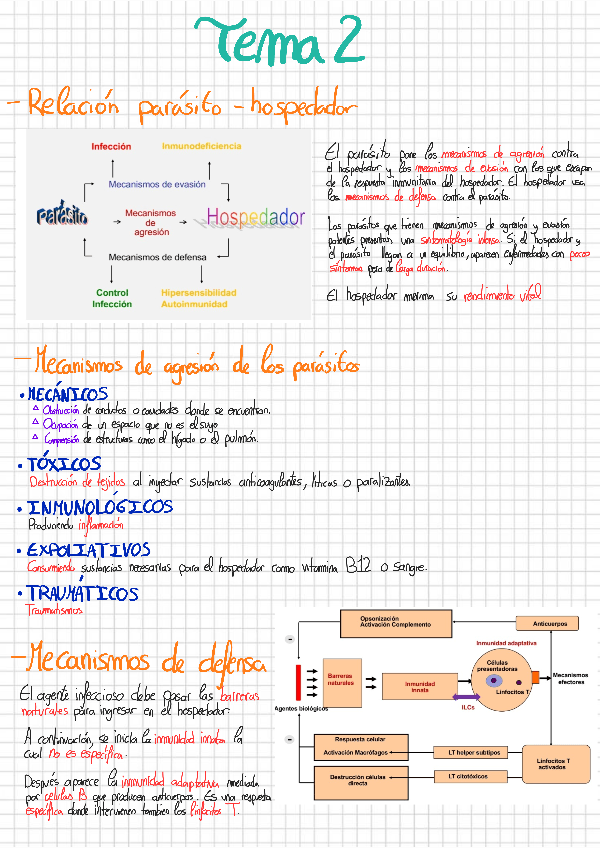 Tema 2
- Relación parásito - hospedador
Infección
Inmunodeficiencia
Mecanismos de evasión
parásito
Mecanismos
de
agresión
Hospedador
Mecanismos de defensa
Control
Infección
Hipersensibilidad
Autoinmunidad
El parásito pone los mecanismos de agresión contra
el hospedador y los mecanismos de evasión con los que escapan
de la respuesta inmunitaria del hospedador. El hospedador usa
los mecanismos de defensa contra el parásito.
Los parásitos que tienen mecanismos de agresión y evasión
potentes presentan una sintomatología intensa. Si el hospedador y
el parásito llegan a un equilibrio, aparecen enfermedades con pocos
síntomas pero de larga duración.
El hospedador merma su rendimiento vital
- Mecanismos de agresión de los parásitos
• MECÁNICOS
△ Obstrucción de conductos o cavidades donde se encuentran.
△ Ocupación de un espacio que no es el suyo
△ Compresión de estructuras como el hígado o el pulmón.
• TÓXICOS
Destrucción de tejidos al inyectar sustancias anticoagulantes, líticas o paralizantes.
• INMUNOLÓGICOS
Produciendo inflamación
• EXPOLIATIVOS
Consumiendo sustancias necesarias para el hospedador como vitamina B12 o sangre.
• TRAUMÁTICOS
Traumatismos
- Mecanismos de defensa
El agente infeccioso debe pasar las barreras
naturales para ingresar en el hospedador.
A continuación, se inicia la inmunidad innata la
cual no es específica.
Después aparece la inmunidad adaptativa mediada
por células B que producen anticuerpos. Es una respuesta
específica donde intervienen también los linfocitos T.
Opsonización
Activación Complemento
Anticuerpos
Inmunidad adaptativa
Células
presentadoras
Linfocitos T
Mecanismos
efectores
Barreras
naturales
Inmunidad
innata
ILCs
Agentes biológicos
Respuesta celular
Activación Macrófagos
LT helper subtipos
Linfocitos T
activados
Destrucción células
directa
LT citotóxicos